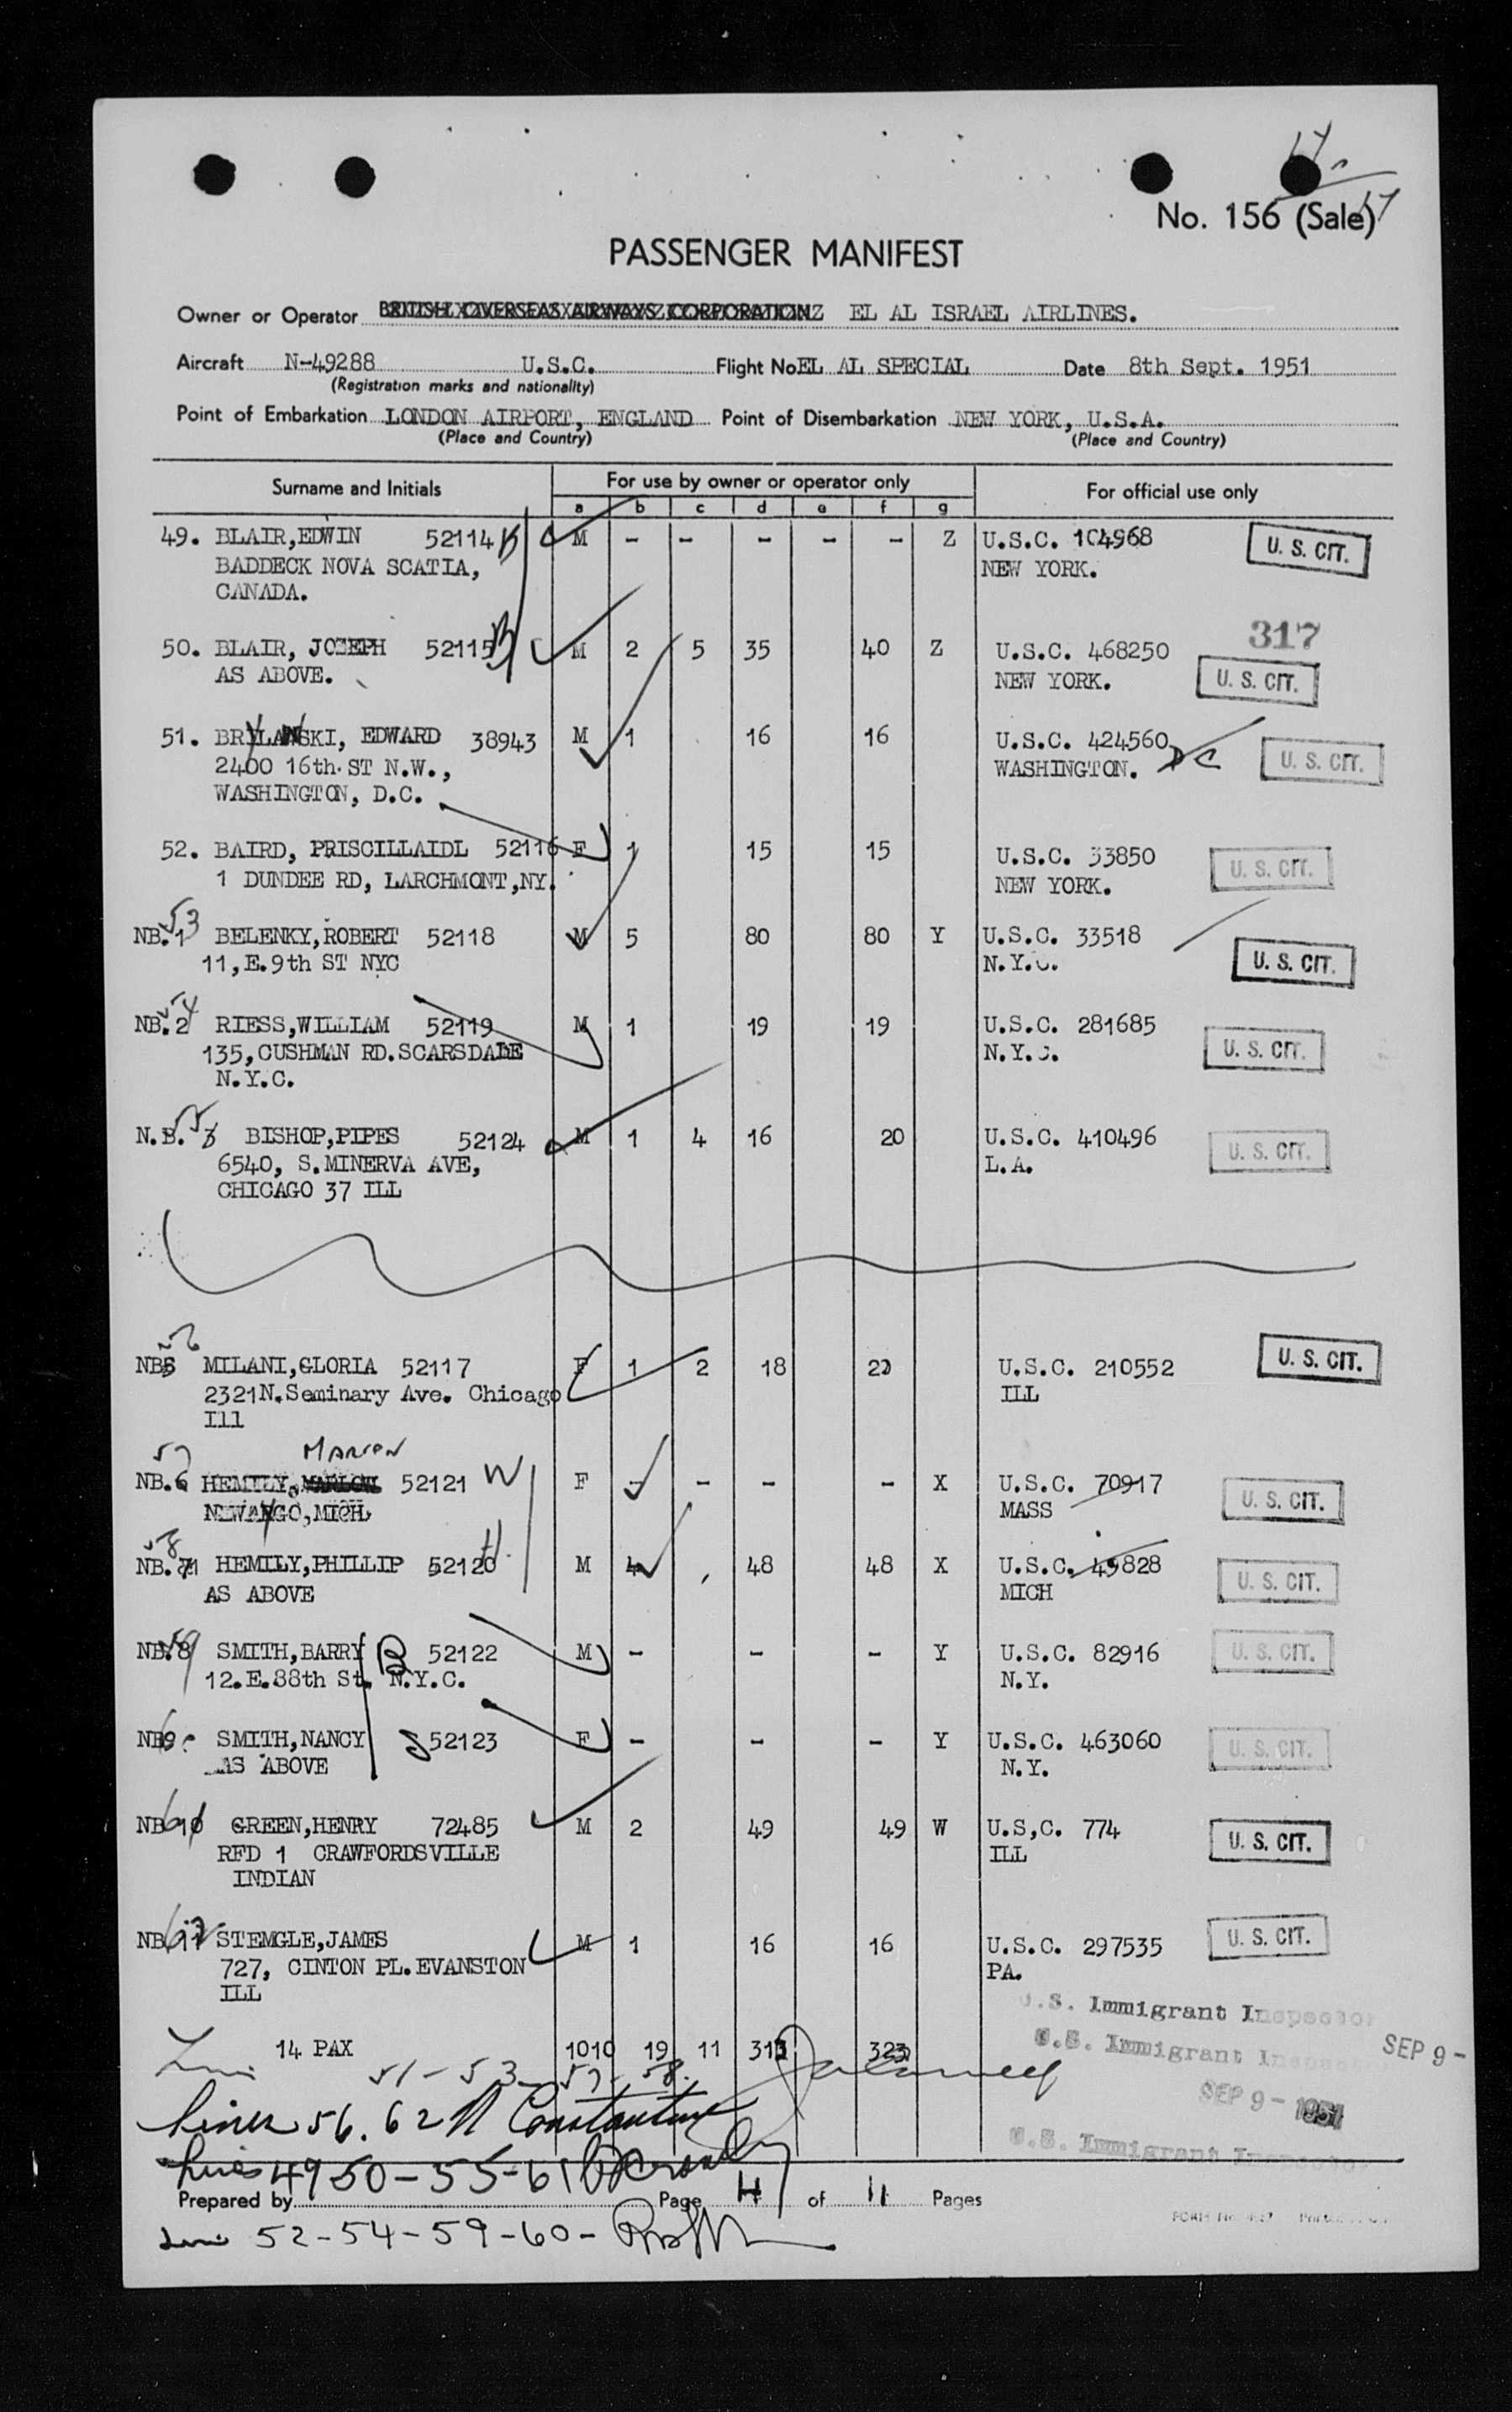 No. 156 (Sale)
PASSENGER MANIFEST
Owner or Operator BRITISH OVERSEAS AIRWAYS CORPORATION EL AL ISRAEL AIRLINES.
Aircraft N-49288 U.S.C. Flight No EL AL SPECIAL Date 8th Sept. 1951
(Registration marks and nationality)
Point of Embarkation LONDON AIRPORT, ENGLAND Point of Disembarkation NEW YORK, U.S.A.
(Place and Country) (Place and Country)
Surname and Initials For use by owner or operator only For official use only
a b c d e f g
49. BLAIR,EDWIN 52114 B M - - - - - Z U.S.C. 104968 U. S. CIT.
BADDECK NOVA SCATIA, NEW YORK.
CANADA.
317
50. BLAIR, JOSEPH 52115 B M 2 5 35 40 Z U.S.C. 468250
AS ABOVE. NEW YORK. U. S. CIT.
51. BRYLAWSKI, EDWARD 38943 M 1 16 16 U.S.C. 424560
2400 16th.ST N.W., WASHINGTON. DC U. S. CIT.
WASHINGTON, D.C.
52. BAIRD, PRISCILLAIDL 52116 F 1 15 15 U.S.C. 33850 U. S. CIT.
1 DUNDEE RD, LARCHMONT,NY. NEW YORK.
53
NB.1 BELENKY,ROBERT 52118 M 5 80 80 Y U.S.C. 33518
11,E.9th ST NYC N.Y.C. U. S. CIT.
54
NB.2 RIESS,WILLIAM 52119 M 1 19 19 U.S.C. 281685
135,CUSHMAN RD.SCARSDALE N.Y.C. U. S. CIT.
N.Y.C.
55
N.B. 3 BISHOP,PIPES 52124 M 1 4 16 20 U.S.C. 410496 U. S. CIT.
6540, S.MINERVA AVE, L.A.
CHICAGO 37 ILL
56
NB5 MILANI,GLORIA 52117 F 1 2 18 20 U.S.C. 210552 U. S. CIT.
2321N.Seminary Ave. Chicago ILL
Ill
57 MARION
NB.6 HEMILY, 52121 W F - - - - X U.S.C. 70917 U. S. CIT.
NEWAYGO,MICH MASS
58
NB.7 HEMILY,PHILLIP 52120 H. M 4 48 48 X U.S.C. 49828 U. S. CIT.
AS ABOVE MICH
NB.8 59 SMITH,BARRY B 52122 M - - - Y U.S.C. 82916 U. S. CIT.
12.E.88th St. N.Y.C. N.Y.
NB9 60 SMITH,NANCY S 52123 F - - - Y U.S.C. 463060 U. S. CIT.
AS ABOVE N.Y.
NB 10 61 GREEN,HENRY 72485 M 2 49 49 W U.S,C. 774 U. S. CIT.
RFD 1 CRAWFORDSVILLE ILL
INDIAN
NB 11 62 STEMGLE,JAMES M 1 16 16 U.S.C. 297535 U. S. CIT.
727, CINTON PL.EVANSTON PA.
ILL
U.S. Immigrant Inspector
14 PAX 1010 19 11 323 U.S. Immigrant Inspector SEP 9 -
51 - 53 - 57 - 58.
SEP 9 - 1951
Lines 56. 62 Constantine
U.S. Immigrant Inspector
Lines 49 50 - 55 - 61
Prepared by Page 4 of 11 Pages
52 - 54 - 59 - 60 -